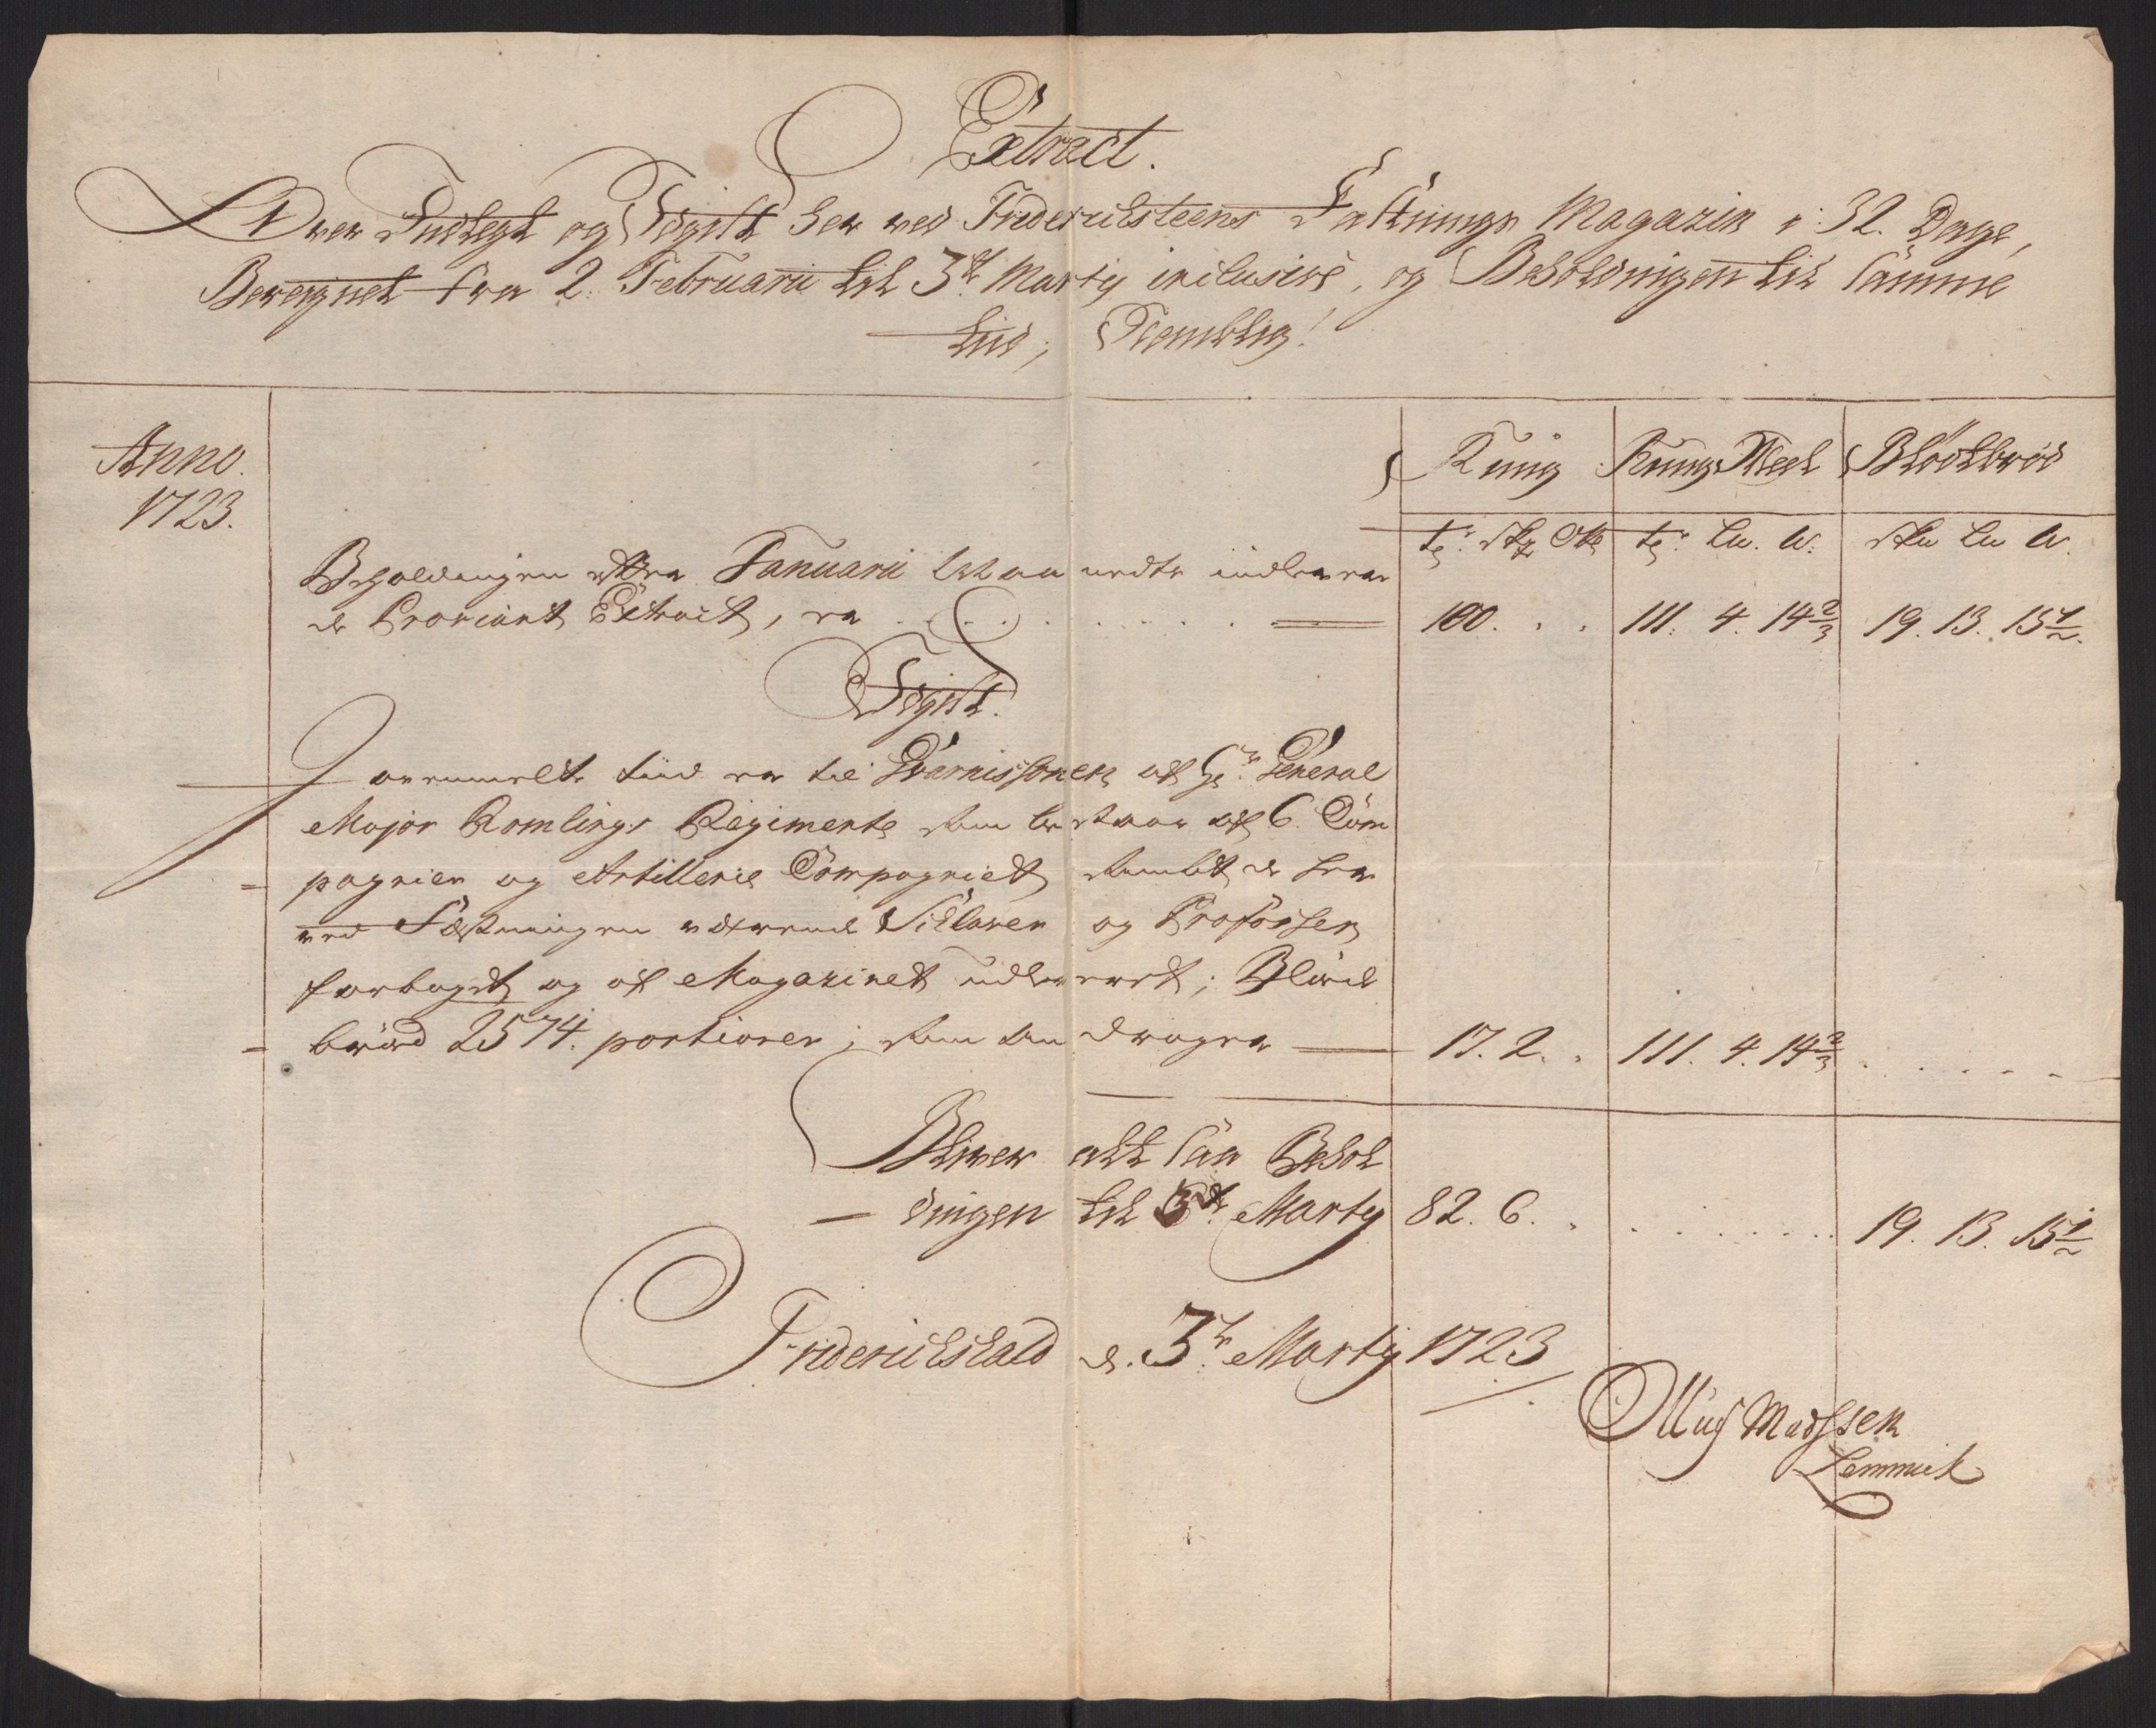 Extract.
Over Indtegt og Udgift her ved Friderichsteens Fæstnings Magazin i 32. Dage,
Beregnet fra 2. Februarii til 3die Martij inclusive, og Beholdningen til samme
tiid; Nemblig!
Anno.
1723.
Rug Rug Meel Blödtbröd
tr: Skp tr: Lu. ℔: Sku Lu ℔.
Beholdningen efter Januarii Maanedts indleveree
de Proviant Extract, er
100. . . 111. 4. 14 2/3 19. 13. 15 1/2.
Udgift.
I ovenmelte tiid er til Guarnisonen af Hr. General
Major Romlings Regimente som bestaar af 6. Com
pagnier og Artillerie Compagniet sambt de her
ved Fæstningen værende Sclaver og Profosser
forbagt og af Magazinet udleveret; Blöed
bröed 2574. portioner; som andrager
17. 2. . 111. 4. 14 2/3
Bliver alt saa Behol
dningen til 3de Martij 82. 6. . 19. 13. 15 1/2
Friderichshald d. 3de Martij 1723
Olluf Madssen
Lemmick